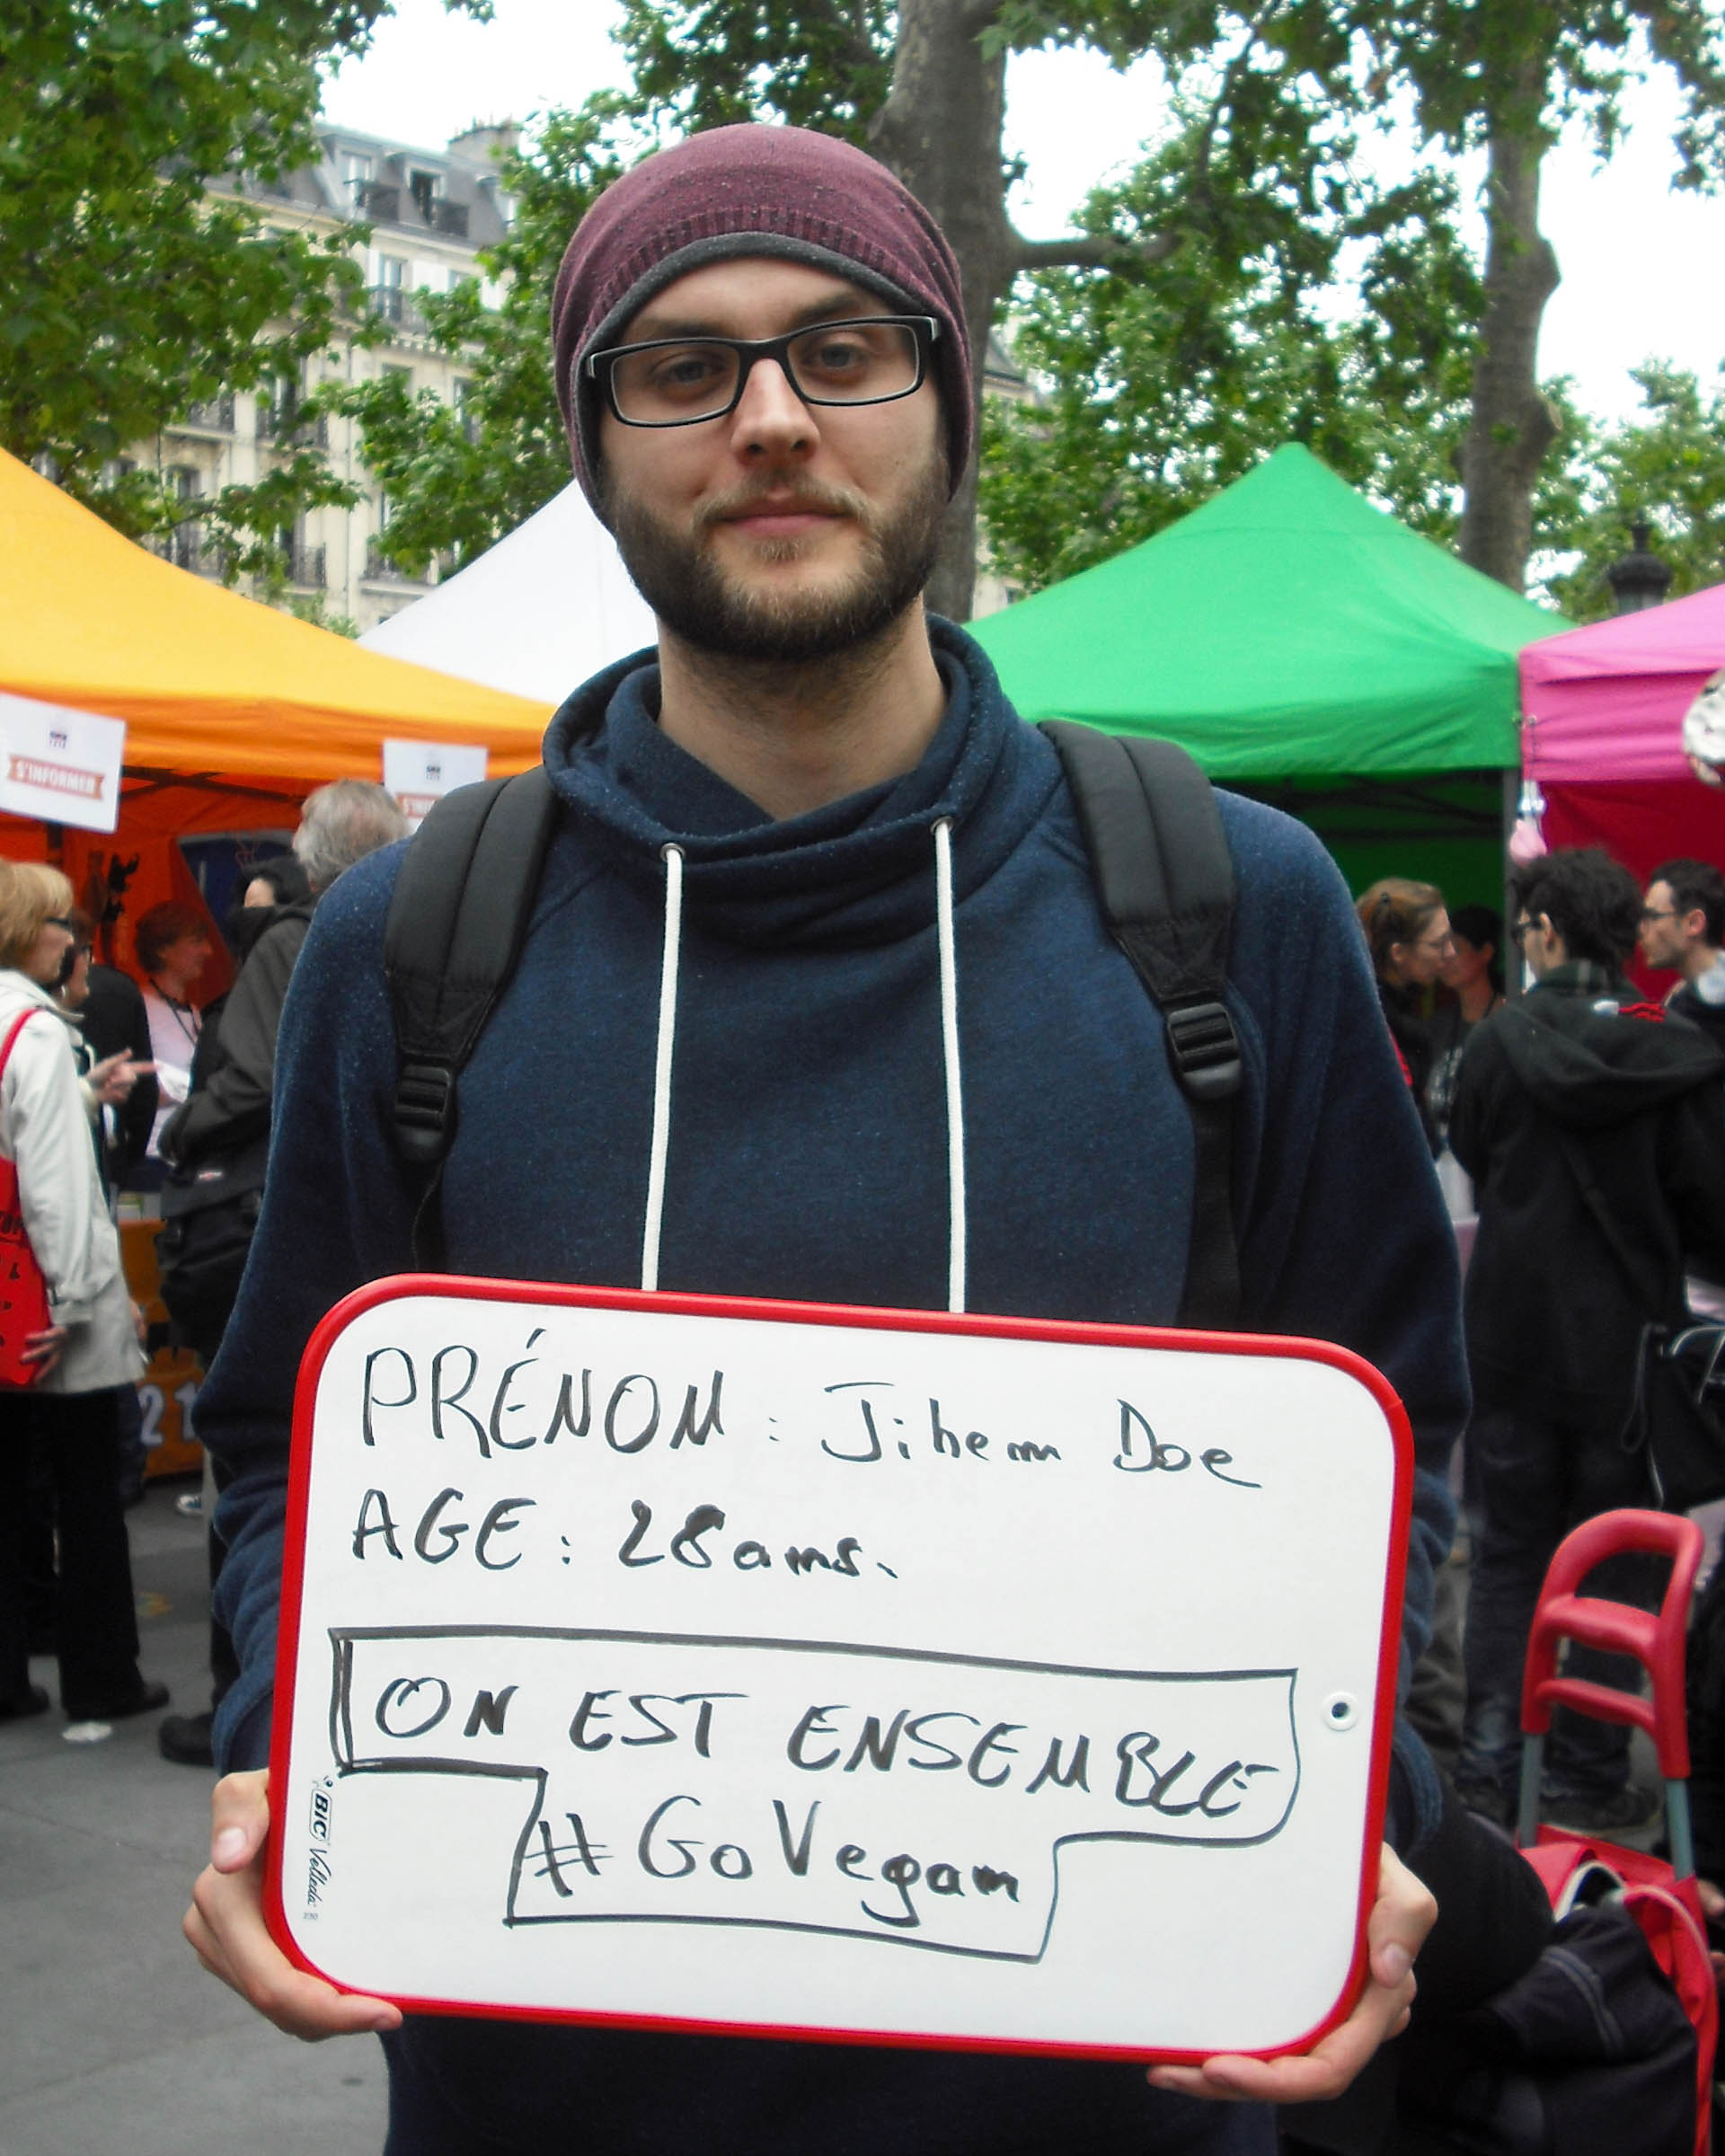 S'INFORMER
PRÉNOM : Jihem Doe
AGE : 28 ans.
ON EST ENSEMBLE
#GoVegan
BIC Velleda